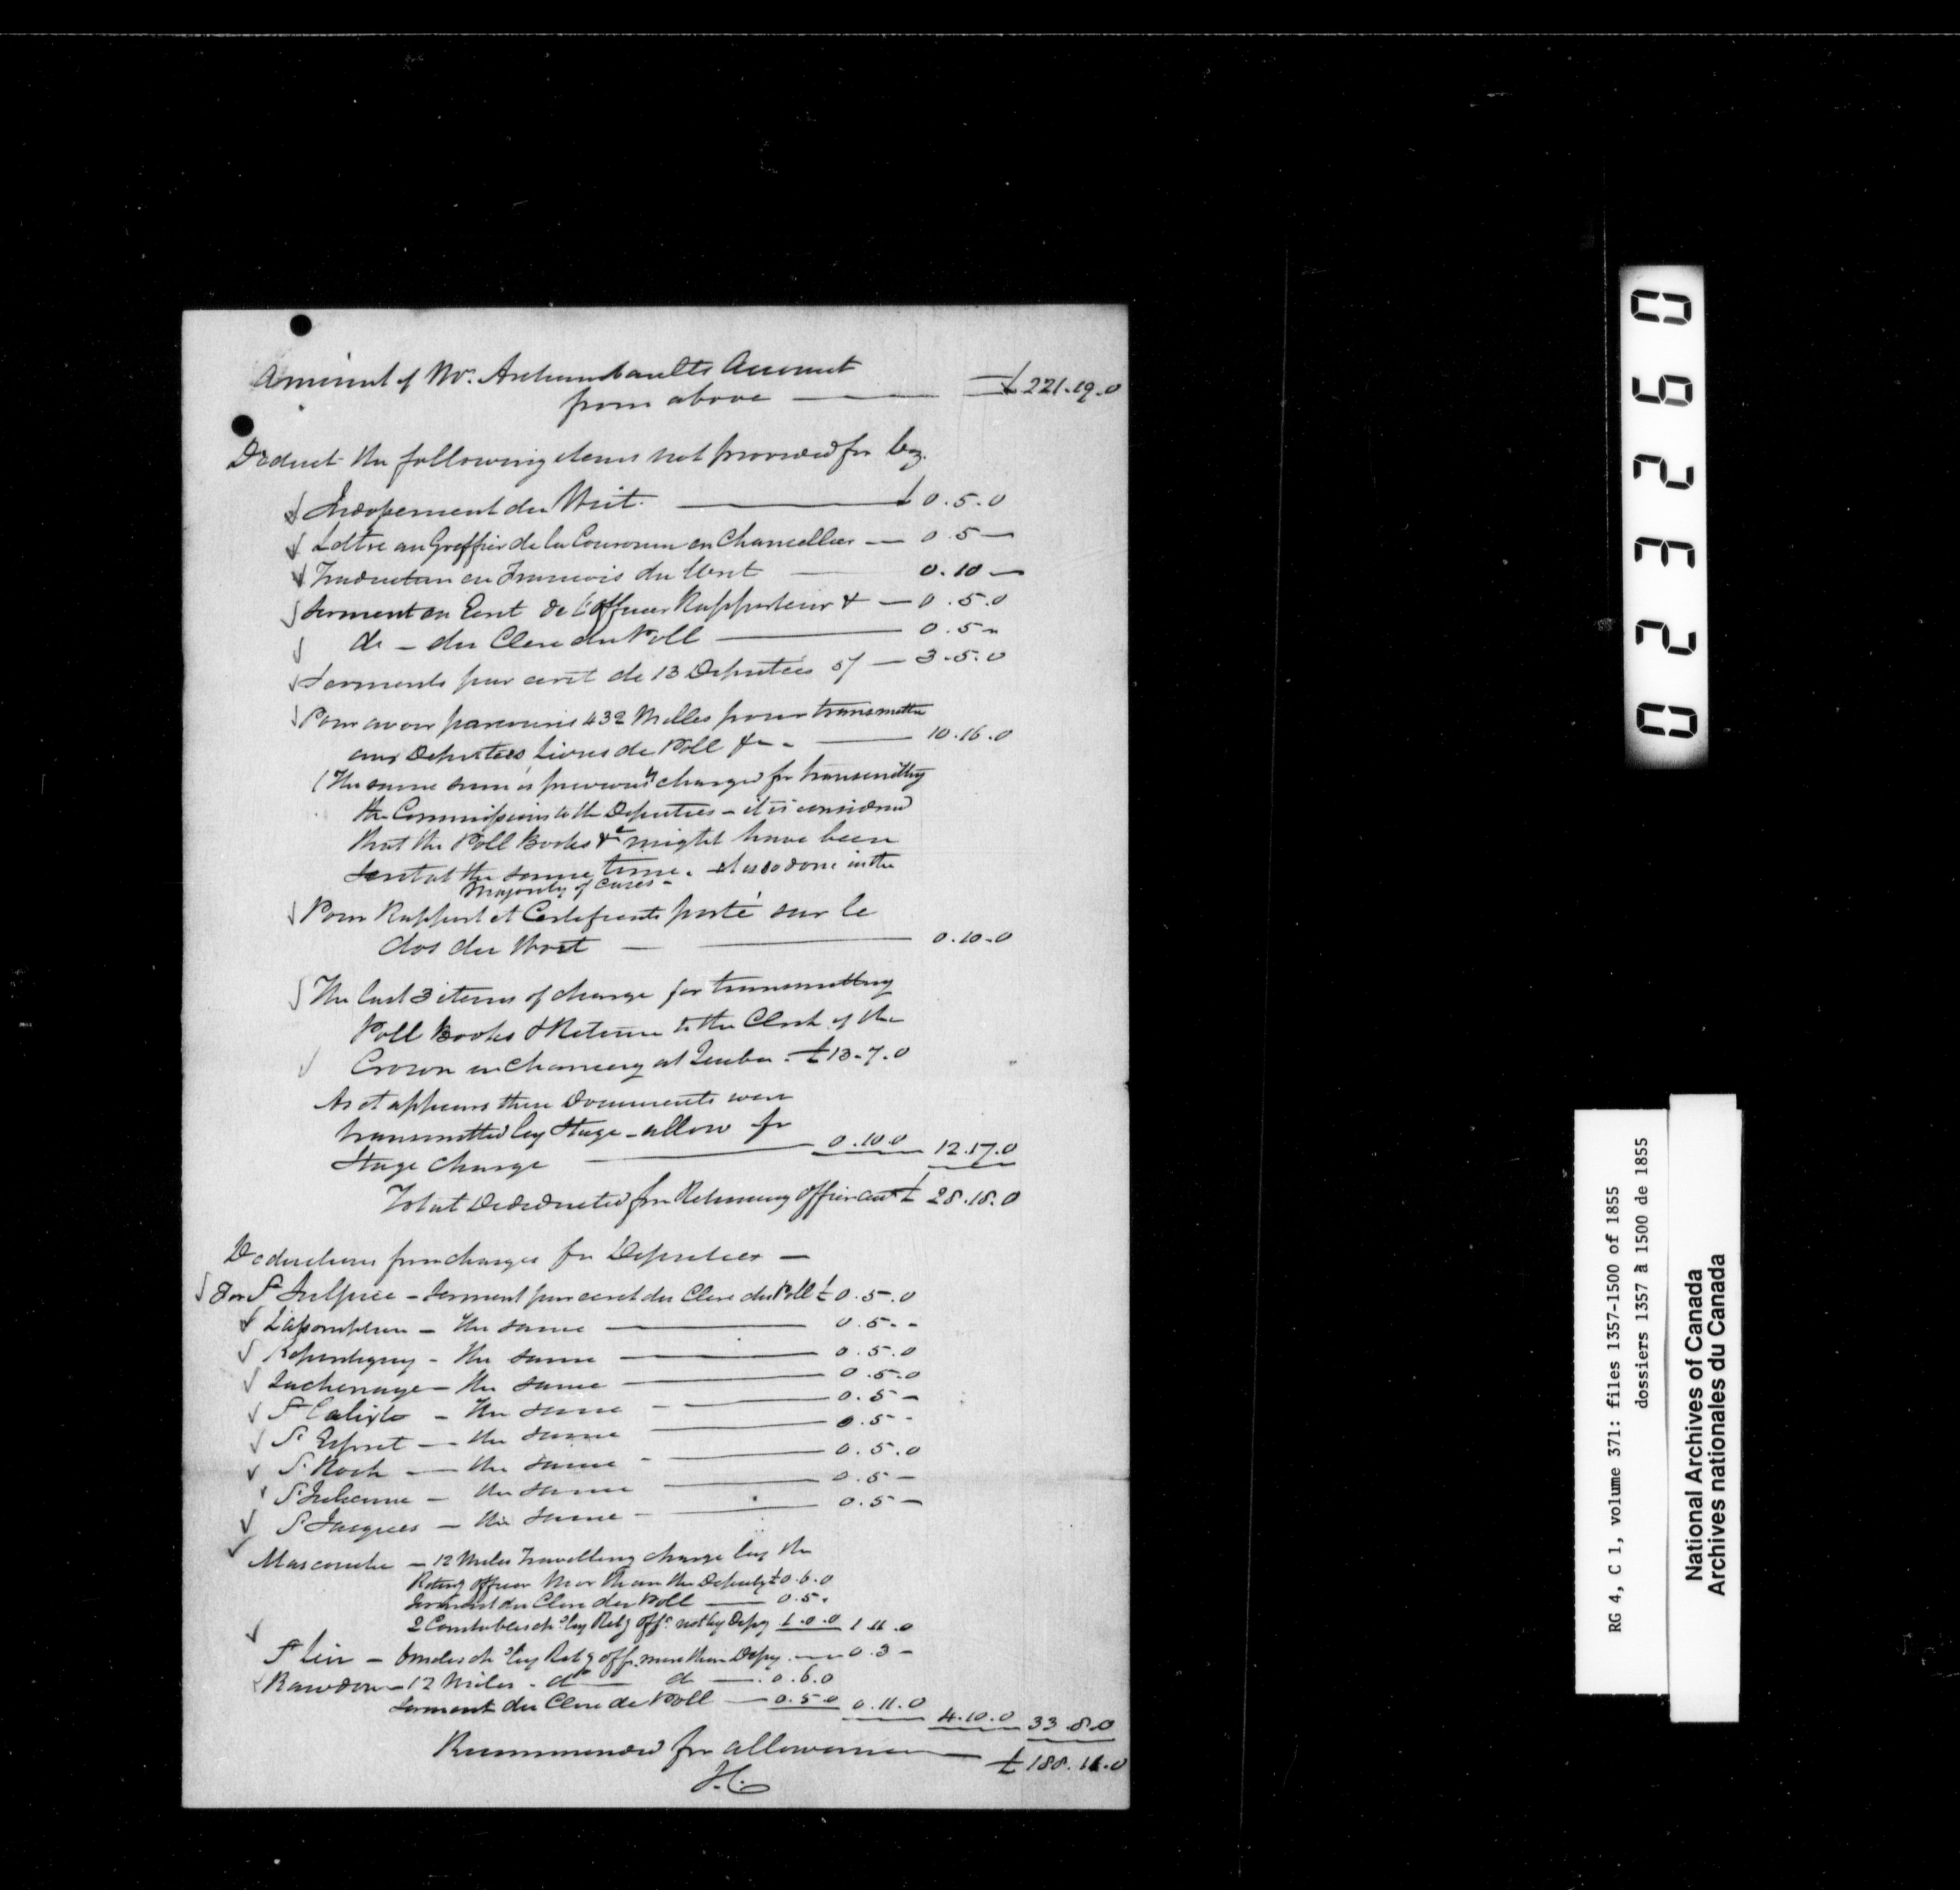 Amount of Mr. Archambaults Account
from above — £221.19.0
Deduct the following items not provided for by.
Endossement du Writ. — £0.5.0
Lettre au Greffier de la Couronne en Chancellier — 0.5—
Traduction en Francois du Writ — 0.10—
Serment en Ecrit de l'Officier Rapporteur & — 0.5.0
do — du Clerc du Poll — 0.5"
Serments par ecrit de 13 Deputées 5/ — 3.5.0
Pour avoir parcouru 432 Milles pour transmettre
aux Deputées, Livres de Poll &c — 10.16.0
(The same sum is previously charged for transmitting
the Commissions to the Deputies — it is considered
that the Poll Books &c might have been
sent at the same time. It is so done in the
Majority of cases —
Pour Rapport et Certificate porté sur le
dos du Writ — 0.10.0
The last 3 items of charge for transmitting
Poll Books & Return to the Clerk of the
Crown in Chancery at Quebec. £13.7.0
As it appears these Documents were
transmitted by Stage — allow for
Stage Charge — 0.10.0 12.17.0
Total Deducted from Returning Officer acct £28.18.0
Deductions from charges for Deputies —
For St Sulpice — Serment par ecrit du Clerc du Poll £0.5.0
L'Assomption — the same — 0.5--
Repentigny — the same — 0.5.0
Lachenaye — the same — 0.5.0
St Calixte — the same — 0.5—
St Esprit — the same — 0.5-
St Roch — the same — 0.5.0
St Julienne — the same — 0.5—
St Jacques — the same — 0.5—
Mascouche — 12 Miles Travelling charge by the
Retng Officer more than the Deputy £0.6.0
Serment du Clerc du Poll — 0.5.
2 Constables chd by Retg Offr. not by Depy 1.0.0 1.11.0
St Lin — 6 miles chd by Retg Offr. more than Depy. — 0.3—
Rawdon — 12 Miles - do do — 0.6.0
Serment du Clerc de Poll — 0.5.0 0.11.0
4.10.0 33.8.0
Recommended for allowance — £188.11.0
023260
RG 4, C 1, volume 371: files 1357-1500 of 1855
dossiers 1357 à 1500 de 1855
National Archives of Canada
Archives nationales du Canada